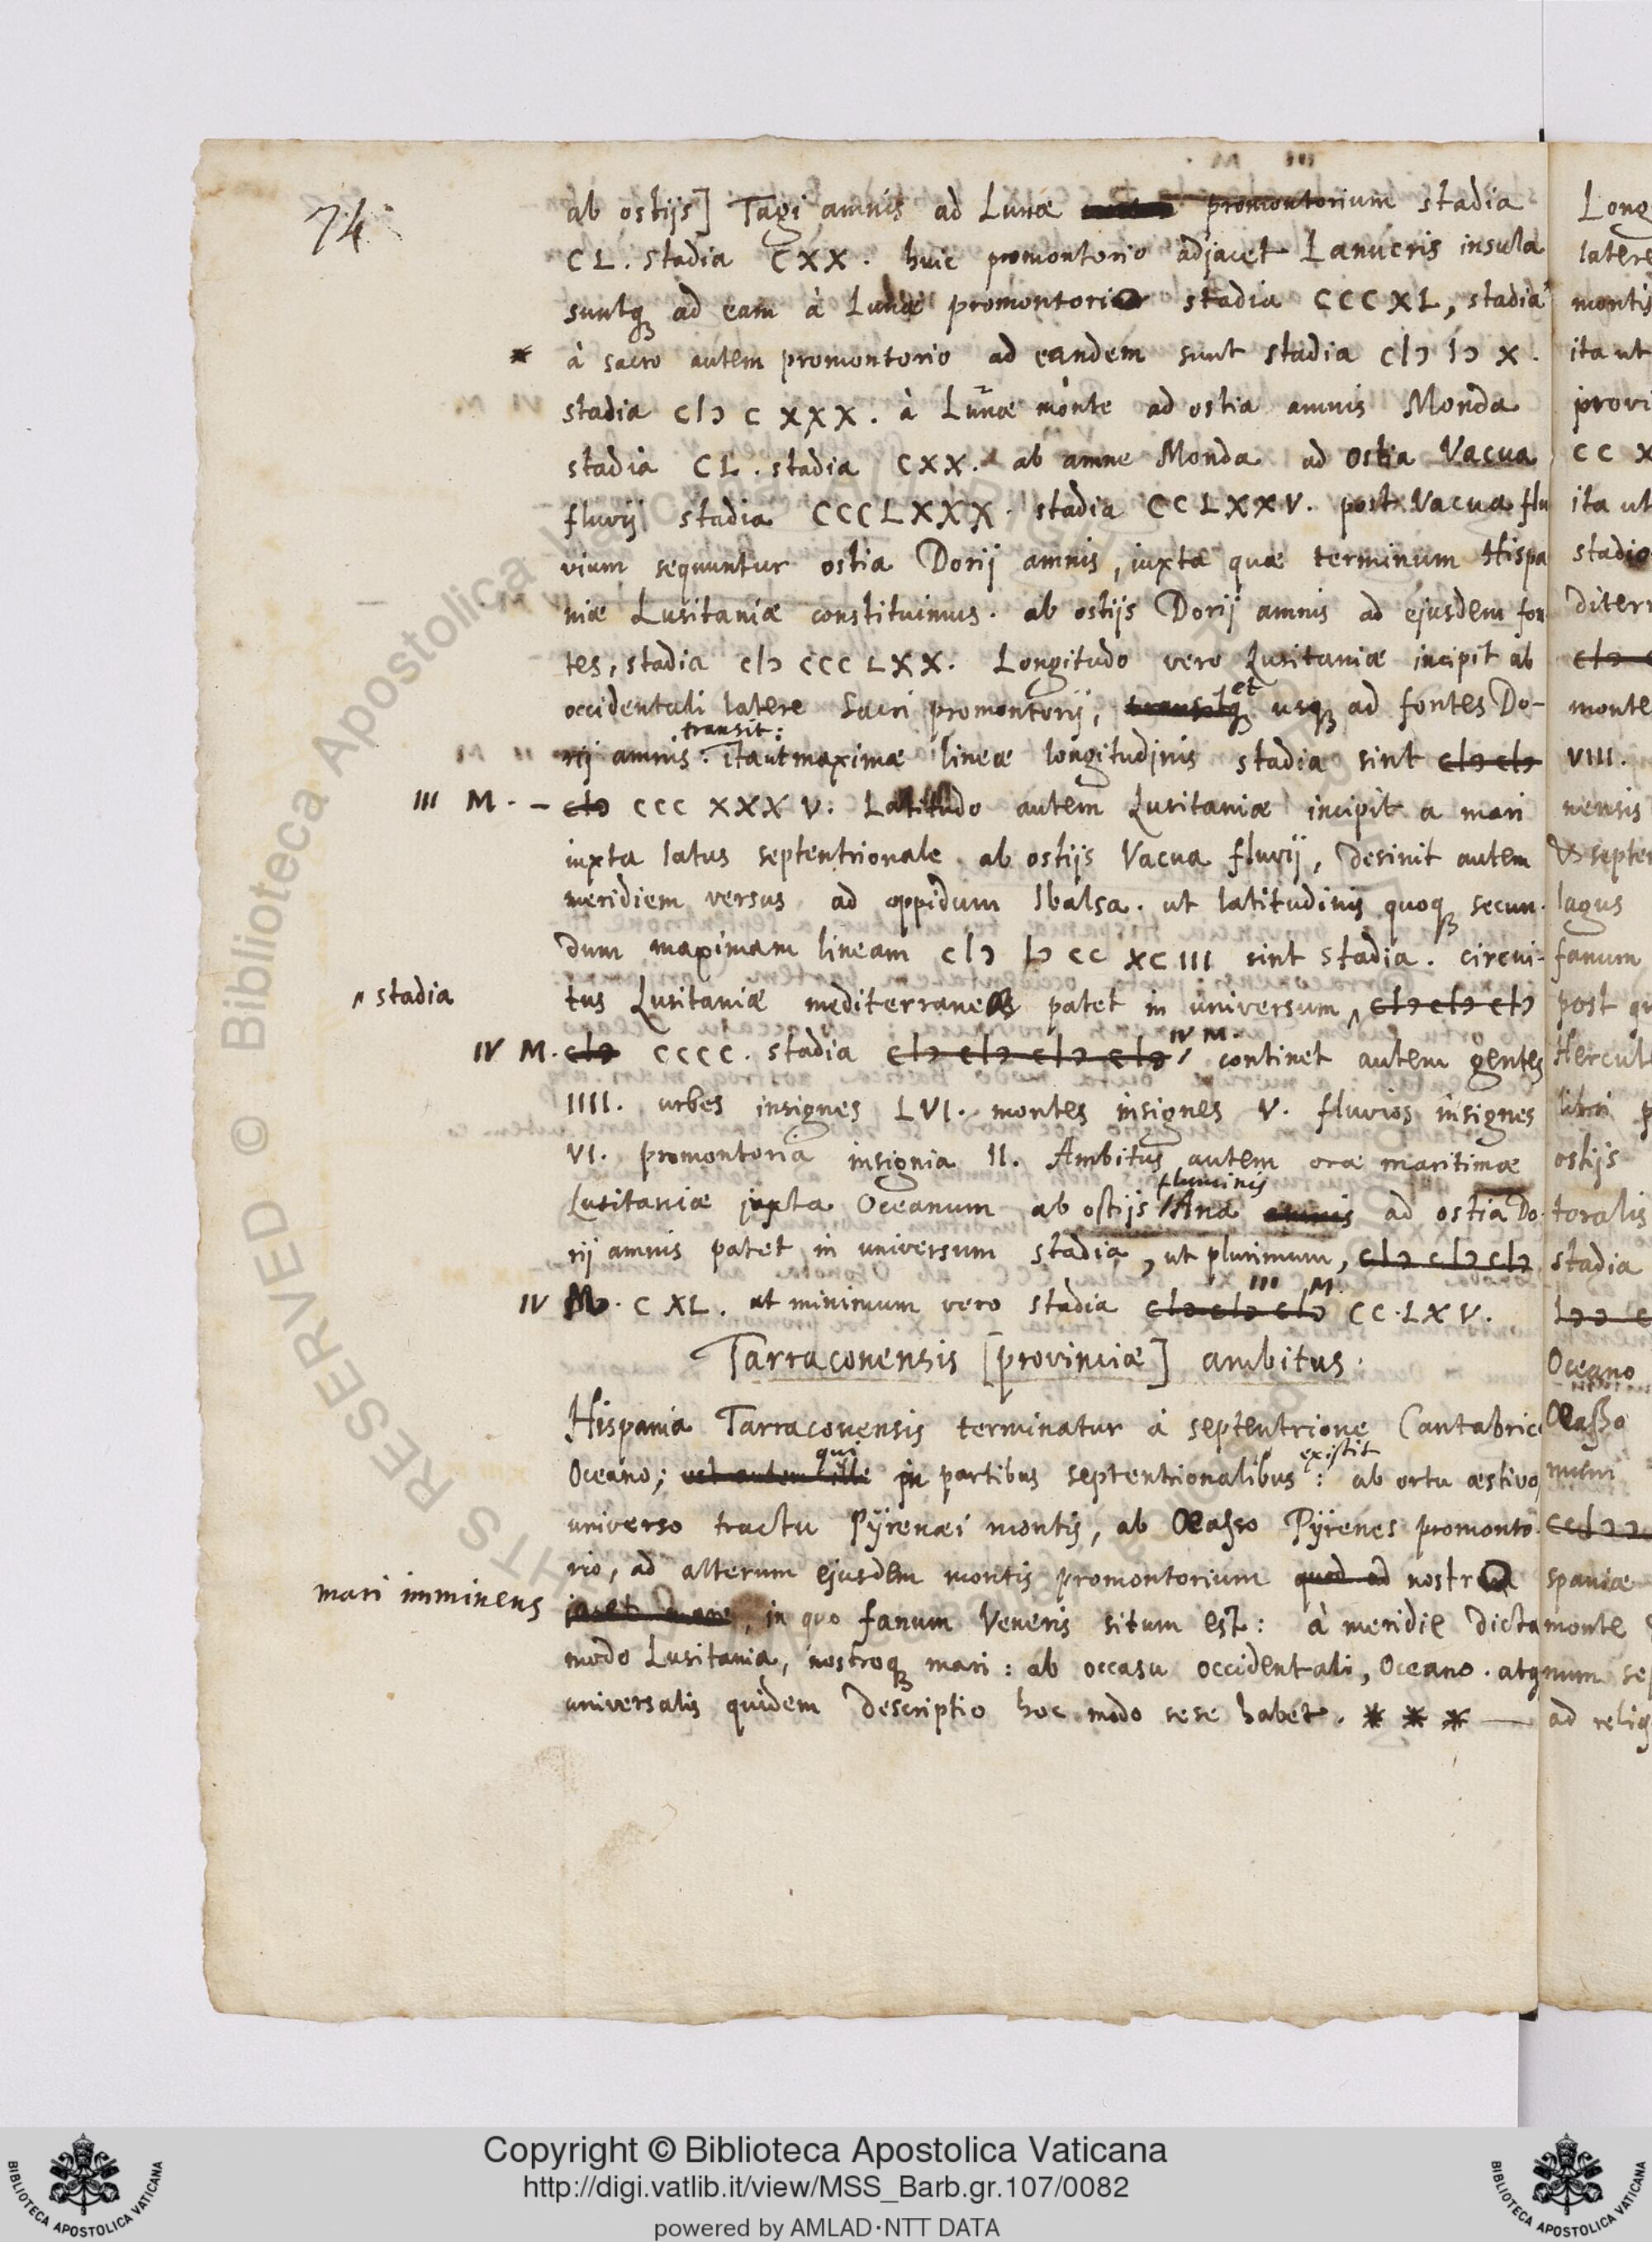 74
ab ostijs] Tagi amnis ad Lunæ promontorium stadia
CL. stadia CXX. huic promontorio adjacet Lanucris insula
suntq; ad eam à Lunæ promontorio stadia CCCXL, stadia
* à sacro autem promontorio ad eandem sunt stadia cIↄ Iↄ X.
stadia cIↄ C XXX. à Lunæ monte ad ostia amnis Monda
stadia CL. stadia CXX. ab amne Monda ad ostia Vacua
fluvij stadia CCCLXXX. stadia CCLXXV. post Vacua flu
vium sequuntur ostia Dorij amnis, iuxta quæ terminum Hispa
niæ Lusitaniæ constituimus. ab ostijs Dorij amnis ad ejusdem fon
tes, stadia cIↄ CCC LXX. Longitudo vero Lusitaniæ incipit ab
et
occidentali latere Sacri promontorij, transitq; usq; ad fontes Do-
transit:
rij amnis. ita ut maximæ lineæ longitudinis stadia sint cIↄ cIↄ
III M. – cIↄ CCC XXX V. Latitudo autem Lusitaniæ incipit a mari
iuxta latus septentrionale ab ostijs Vacua fluvij, desinit autem
meridiem versus ad oppidum Ibalsa. ut latitudinis quoq; secun-
dum maximam lineam cIↄ Iↄ CC XCIII sint stadia. circui-
stadia
tus Lusitaniæ mediterraneæ patet in universum cIↄ cIↄ cIↄ
IV M.
IV M. cIↄ CCCC. stadia cIↄ cIↄ cIↄ cIↄ continet autem gentes
IIII. urbes insignes LVI. montes insignes V. fluvios insignes
VI. promontoria insignia II. Ambitus autem oræ maritimæ
fluminis
Lusitaniæ juxta Oceanum ab ostijs Ana amnis ad ostia Do-
rij amnis patet in universum stadia, ut plurimum, cIↄ cIↄ cIↄ
III M.
IV M. C XL. at minimum vero stadia cIↄ cIↄ cIↄ CC.LXV.
Tarraconensis [provinciæ] ambitus.
Hispania Tarraconensis terminatur à septentrione Cantabrico
qui existit
Oceano; est autem ille in partibus septentrionalibus: ab ortu æstivo,
universo tractu Pyrenæi montis, ab Oeasso Pyrenes promonto-
rio, ad alterum ejusdem montis promontorium quod ad nostro
mari imminens
jacet mare, in quo fanum Veneris situm est: à meridie dicta
modo Lusitania, nostroq; mari: ab occasu occidentali, Oceano. atq
universalis quidem descriptio hoc modo sese habet. * * * —
Long
latere
montis
ita ut
provi
CC X
ita ut
stadio
diterr
cIↄ
monte
VIII.
nensis
& septen
lagus
fanum
post qu
Hercule
ostijs
toralis
stadia
Oceano
Oeasso
spaniæ
monte
num sep
ad relig
Copyright © Biblioteca Apostolica Vaticana
http://digi.vatlib.it/view/MSS_Barb.gr.107/0082
powered by AMLAD·NTT DATA
BIBLIOTECA APOSTOLICA VATICANA
BIBLIOTECA APOSTOLICA VATICANA